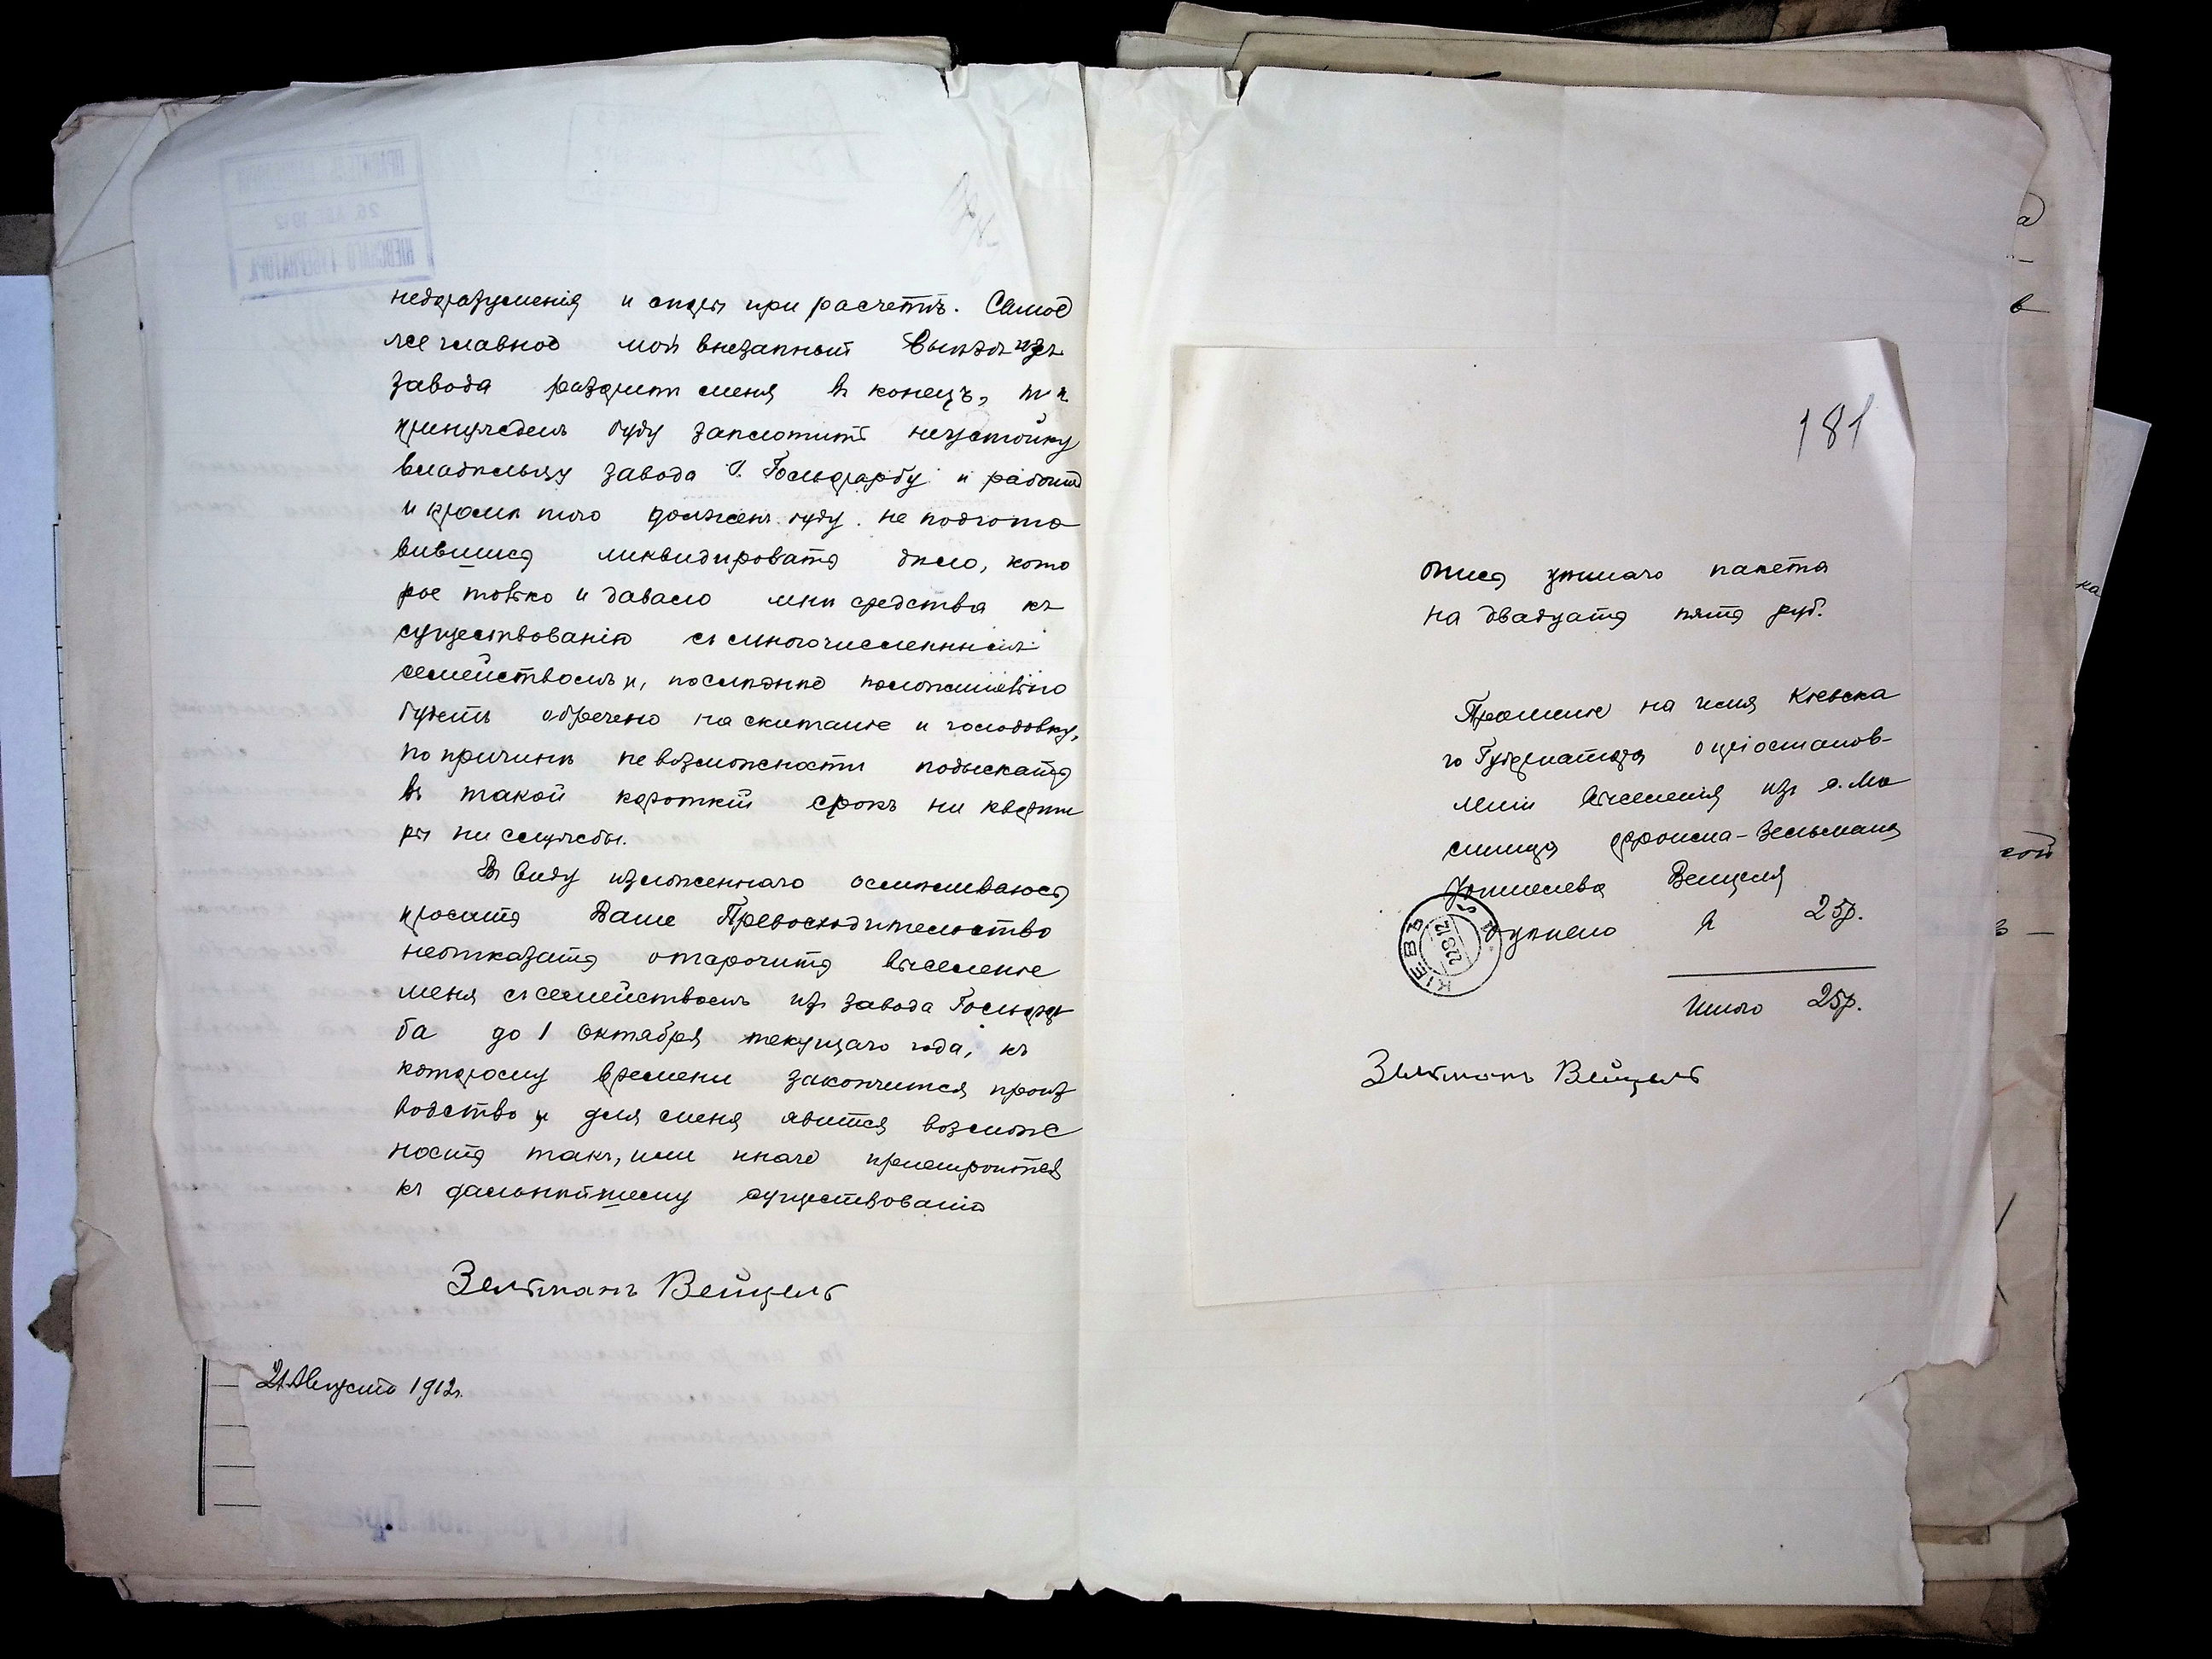 недоразуменія и споры при расчетѣ. Самое
же главное мой внезапный выѣздъ изъ
завода разоритъ меня въ конецъ, т к
принужденъ буду заплотить неустойку
владѣльцу завода Г. Гольдфарбу и рабочимъ
и кромѣ того долженъ буду не подгото
вившися ликвидировать дѣло, кото
рое только и давало мнѣ средства къ
существованію съ многочисленнымъ
семействомъ и, послѣднее положительно
будетъ обречено на скитаніе и голодовку,
по причинѣ невозможности подыскать
въ такой короткій срокъ ни кварти
ры ни службы.
Въ виду изложеннаго осмѣливаюсь
просить Ваше Превосходительство
неотказать отсрочить выселеніе
меня съ семействомъ изъ завода Гольдфар
ба до 1 Октября текущаго года, къ
которому времени закончится произ
водство и для меня явится возмож
ность такъ, или иначе пристроится
къ дальнѣйшему существованію
Зельманъ Вейцель
21 Августа 1912г.
181
Опись цѣннаго пакета
на двадцать пять руб.
Прошеніе на имя Кіевска
го Губернатора о пріостанов-
леніи выселенія изъ с. Мо
Зельмана
Вейцеля
оцѣнено в 25р.
Итого 25р.
Зельманъ Вейцель
КІЕВЪ